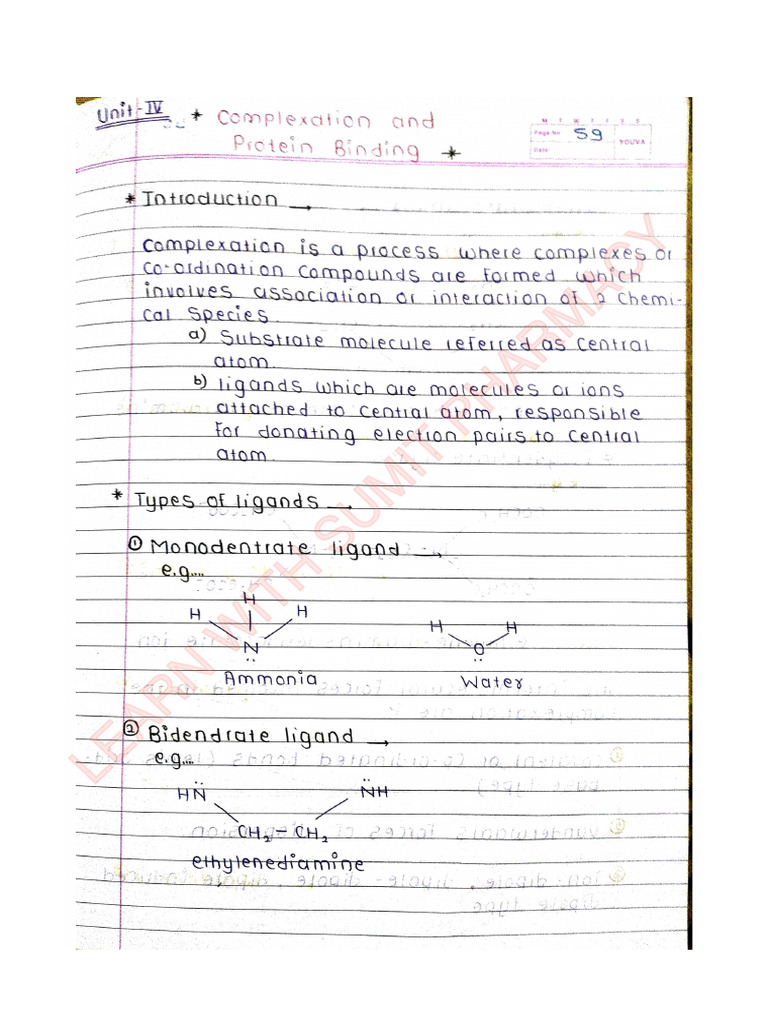 Unit-IV * Complexation and
Protein Binding *
M T W T F S S
Page No. 59
Date: YOUVA
* Introduction →
Complexation is a process where complexes or
co-ordination compounds are formed which
involves association or interaction of 2 chemi-
cal species.
a) Substrate molecule referred as central
atom.
b) ligands which are molecules or ions
attached to central atom, responsible
for donating election pairs to central
atom.
* Types of ligands →
① Monodentrate ligand →
e.g....
H H H
N
Ammonia
H H
O
Water
② Bidendrate ligand →
e.g....
HN NH
CH2 – CH2
ethylenediamine
LEARN WITH SUMIT PHARMACY